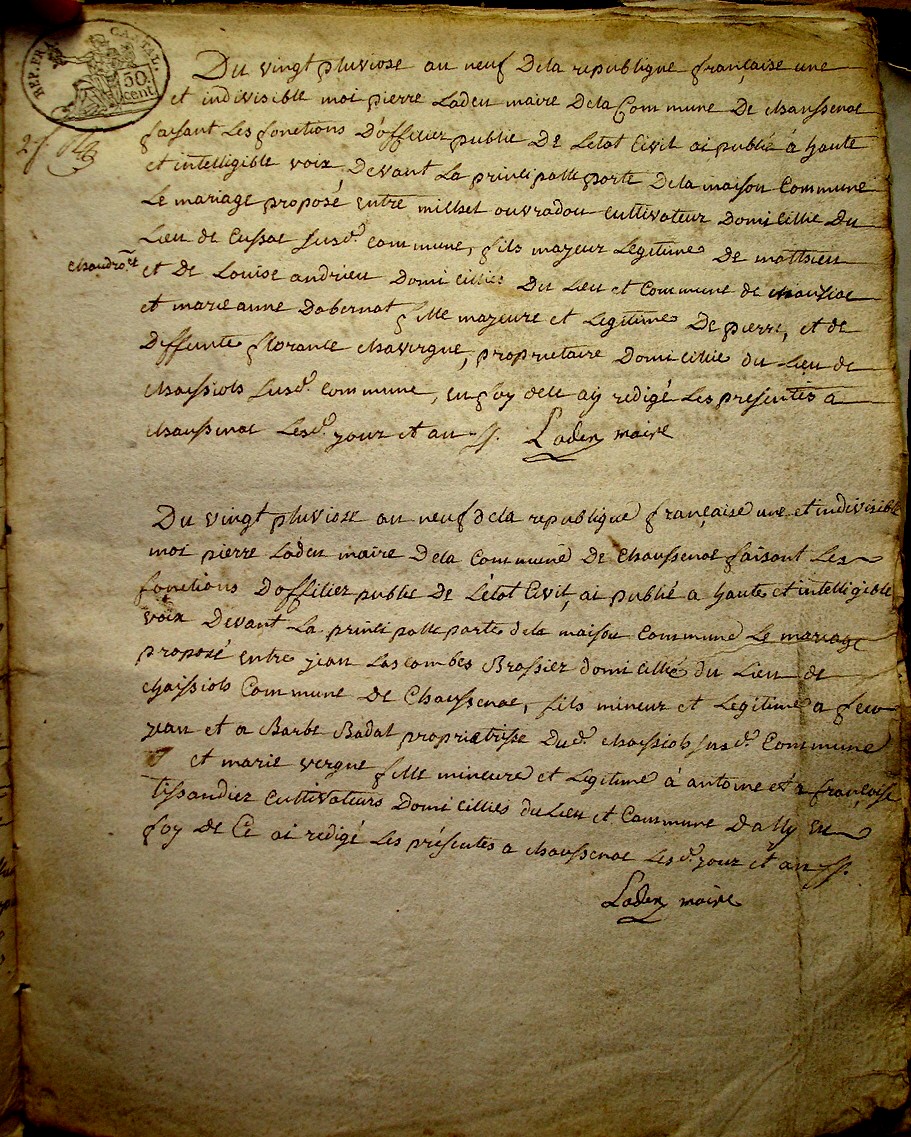 REP. FRA. CANTAL.
50. cent.
Du vingt pluviose an neuf De la republique française une
et indivisible moi pierre Laden maire De la Commune De chaussenac
faisant Les fonctions D'offitier public De L'etat Civil ai publié à haute
et intelligible voix Devant La principalle porte De la maison Commune
Le mariage proposé entre milhet ouvradou Cultivateur Domicillié Du
Lieu de Cussac susd. commune, fils majeur Legitime De matthieu
et De Louise andrieu Domicilliés Du Lieu et Commune de
et marie anne Dabernat fille majeure et Legitime De pierre, et de
Deffunte florante chavergne, proprietaire Domicillié du Lieu de
chaissiols susd. Commune, en foy de ce ay redigé Les presentes a
chaussenac Lesd. jour et an
Laden maire
Du vingt pluviose an neuf de la republique française une et indivisible
moi pierre Laden maire De la Commune De Chaussenac faisant Les
fonctions D'offitier public De L'état Civil, ai publié a haute et intelligible
voix Devant La principalle porte de la maison Commune Le mariage
proposé entre jean Lascombes Brassier domicillié du Lieu de
chaissiols Commune De Chaussenac, fils mineur et Legitime a feu
jean et a Barbe Badal proprietrisse Dud. chaissiols susd. Commune
et marie vergne fille mineure et Legitime à antoine et a françoise
tissandier Cultivateurs Domicilliés du Lieu et Commune D'ally en
foy De Ce ai redigé Les présentes a chaussenac Lesd. jour et an
Laden maire